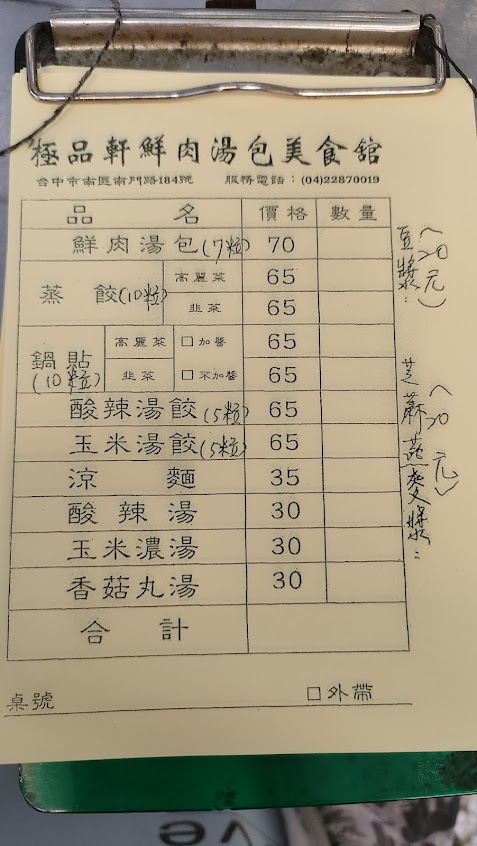 極品軒鮮肉湯包美食舘
台中市南區南門路184號 服務電話：(04)22870019
品 名 價格 數量
鮮肉湯包(7粒) 70
蒸 餃(10粒) 高麗菜 65
韭菜 65
鍋貼(10粒) 高麗菜 □加醬 65
韭菜 □不加醬 65
酸辣湯餃(5粒) 65
玉米湯餃(5粒) 65
涼 麵 35
酸辣湯 30
玉米濃湯 30
香菇丸湯 30
合 計
桌號 □外帶
豆漿：(20元)
芝蔴燕麥漿：(30元)
ve